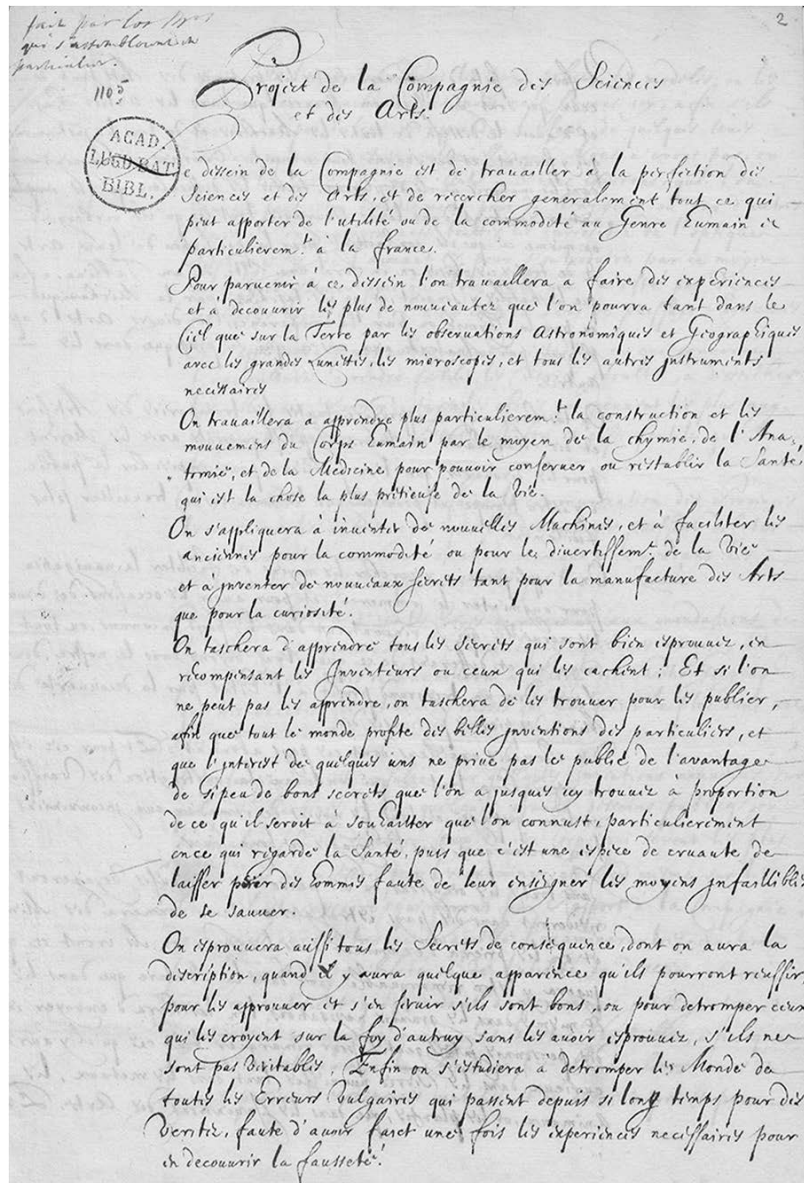 fait par les Mrs
qui s'assembloient en
particulier.
2
1105
Project de la Compagnie des Sciences
et des Arts.
ACAD.
LUGD. BAT
BIBL.
e dessein de la Compagnie est de travailler à la perfection des
Sciences et des Arts, et de recercher generalement tout ce qui
peut apporter de l'utilité ou de la commodité au Genre humain et
particulierem.t à la france.
Pour parvenir à ce dessein l'on travaillera a faire des experiences
et à decouvrir les plus de nouveautez que l'on pourra tant dans le
Ciel que sur la Terre par les observations Astronomiques et Geographiques
avec les grandes Lunettes, les microscopes, et tous les autres jnstruments
necessaires
On travaillera a apprendre plus particulierem.t la construction et les
mouvemens du Corps humain par le moyen de la chymie, de l'Ana-
tomie, et de la Medicine pour pouvoir conserver ou restablir la Santé
qui est la chose la plus prétieuse de la Vie.
On s'appliquera à inventer de nouvelles Machines, et à faciliter les
anciennes pour la commodité ou pour le divertissem.t de la Vie
et à jnventer de nouveaux secrets tant pour la manufacture des Arts
que pour la curiosité.
On taschera d'apprendre tous les secrets qui sont bien esprouvez, en
recompensant les Jnventeurs ou ceux qui les cachent; Et si l'on
ne peut pas les apprendre, on taschera de les trouver pour les publier,
afin que tout le monde profite des belles jnventions des particuliers, et
que l'jnterest de quelques uns ne prive pas le public de l'avantage
de si peu de bons secrets que l'on a jusques icy trouvez à proportion
de ce qu'il seroit à souhaitter que l'on connust, particulierement
en ce qui regarde la Santé, puis que c'est une espece de cruauté de
laisser perir des hommes faute de leur enseigner les moyens jnfaillibles
de se sauver.
On esprouvera aussi tous les Secrets de consequence, dont on aura la
description, quand il y aura quelque apparence qu'ils pourront reussir,
pour les approuver et s'en servir s'ils sont bons, ou pour detromper ceux
qui les croyent sur la foy d'autruy sans les avoir esprouvez, s'ils ne
sont pas veritables, Enfin on s'estudiera à detromper le Monde de
toutes les Erreurs Vulgaires qui passent depuis si long temps pour des
Veritez, faute d'avoir faict une fois les experiences necessaires pour
en decouvrir la fausseté.